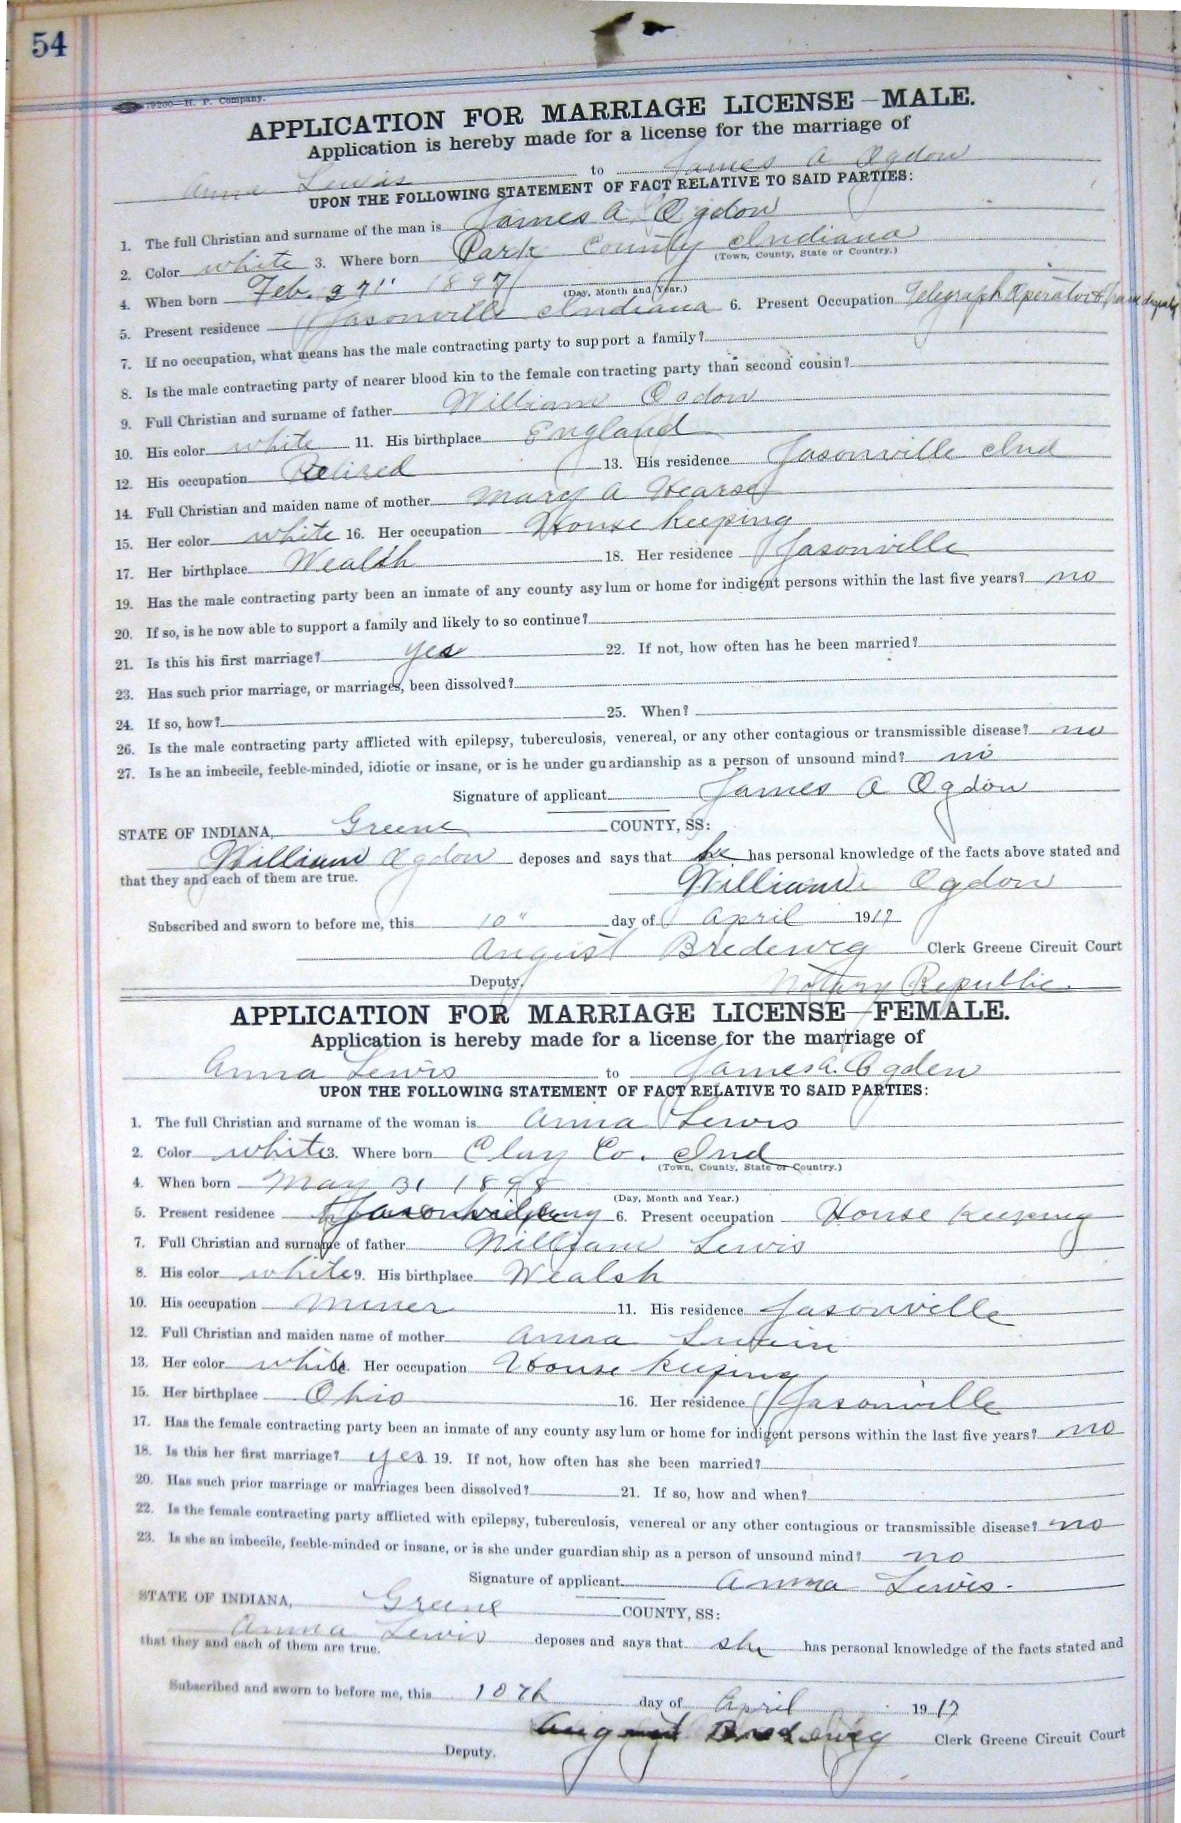 54
79200—H. P. Company.
APPLICATION FOR MARRIAGE LICENSE—MALE.
Application is hereby made for a license for the marriage of
Anna Lewis to James A Ogdon
UPON THE FOLLOWING STATEMENT OF FACT RELATIVE TO SAID PARTIES:
1. The full Christian and surname of the man is James A Ogdon
2. Color white 3. Where born Park County Indiana
(Town, County, State or Country.)
4. When born Feb. 27" 1897
(Day, Month and Year.)
5. Present residence Jasonville Indiana 6. Present Occupation Telegraph Operator
7. If no occupation, what means has the male contracting party to support a family?
8. Is the male contracting party of nearer blood kin to the female contracting party than second cousin?
9. Full Christian and surname of father William Ogdon
10. His color white 11. His birthplace England
12. His occupation Retired 13. His residence Jasonville Ind
14. Full Christian and maiden name of mother Mary A Hearse
15. Her color white 16. Her occupation House keeping
17. Her birthplace Wealsh 18. Her residence Jasonville
19. Has the male contracting party been an inmate of any county asylum or home for indigent persons within the last five years? no
20. If so, is he now able to support a family and likely to so continue?
21. Is this his first marriage? yes 22. If not, how often has he been married?
23. Has such prior marriage, or marriages, been dissolved?
24. If so, how? 25. When?
26. Is the male contracting party afflicted with epilepsy, tuberculosis, venereal, or any other contagious or transmissible disease? no
27. Is he an imbecile, feeble-minded, idiotic or insane, or is he under guardianship as a person of unsound mind? no
Signature of applicant James A Ogdon
STATE OF INDIANA, Greene COUNTY, SS:
William Ogdon deposes and says that he has personal knowledge of the facts above stated and
that they and each of them are true.
William Ogdon
Subscribed and sworn to before me, this 10" day of April 1917
August Bredeweg Clerk Greene Circuit Court
Deputy. Notary Republic.
APPLICATION FOR MARRIAGE LICENSE—FEMALE.
Application is hereby made for a license for the marriage of
Anna Lewis to James A. Ogden
UPON THE FOLLOWING STATEMENT OF FACT RELATIVE TO SAID PARTIES:
1. The full Christian and surname of the woman is Anna Lewis
2. Color white 3. Where born Clay Co. Ind
(Town, County, State or Country.)
4. When born May 31 1898
(Day, Month and Year.)
5. Present residence 6. Present occupation House Keeping
7. Full Christian and surname of father William Lewis
8. His color white 9. His birthplace Wealsh
10. His occupation Miner 11. His residence Jasonville
12. Full Christian and maiden name of mother Anna
13. Her color white Her occupation House keeping
15. Her birthplace Ohio 16. Her residence Jasonville
17. Has the female contracting party been an inmate of any county asylum or home for indigent persons within the last five years? no
18. Is this her first marriage? yes 19. If not, how often has she been married?
20. Has such prior marriage or marriages been dissolved? 21. If so, how and when?
22. Is the female contracting party afflicted with epilepsy, tuberculosis, venereal or any other contagious or transmissible disease? no
23. Is she an imbecile, feeble-minded or insane, or is she under guardianship as a person of unsound mind? no
Signature of applicant Anna Lewis.
STATE OF INDIANA, Greene COUNTY, SS:
Anna Lewis deposes and says that she has personal knowledge of the facts stated and
that they and each of them are true.
Subscribed and sworn to before me, this 10th day of April 1917
August Bredeweg Clerk Greene Circuit Court
Deputy.